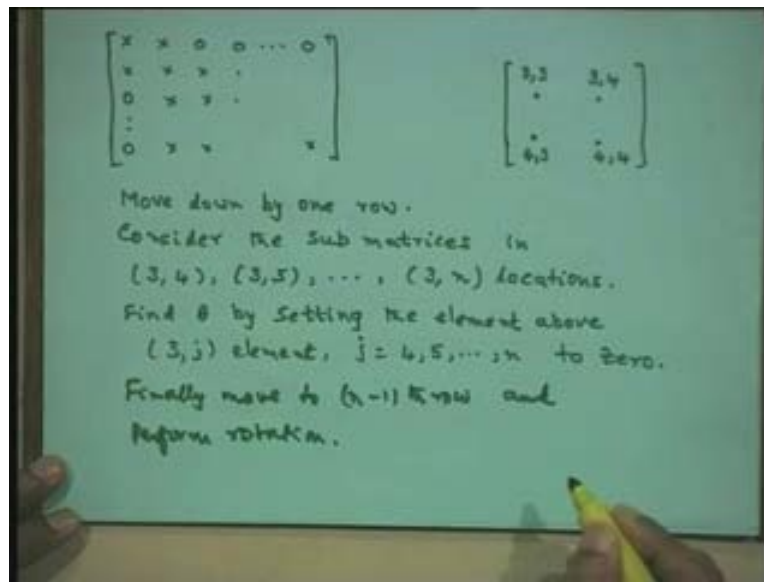 x x 0 0 ... 0
x x x .
0 x x .
:
0 x x x
3,3 3,4
4,3 4,4
Move down by one row.
Consider the sub matrices in
(3,4), (3,5), ..., (3,n) locations.
Find θ by setting the element above
(3,j) element, j = 4,5,...,n to zero.
Finally move to (n-1)th row and
perform rotation.